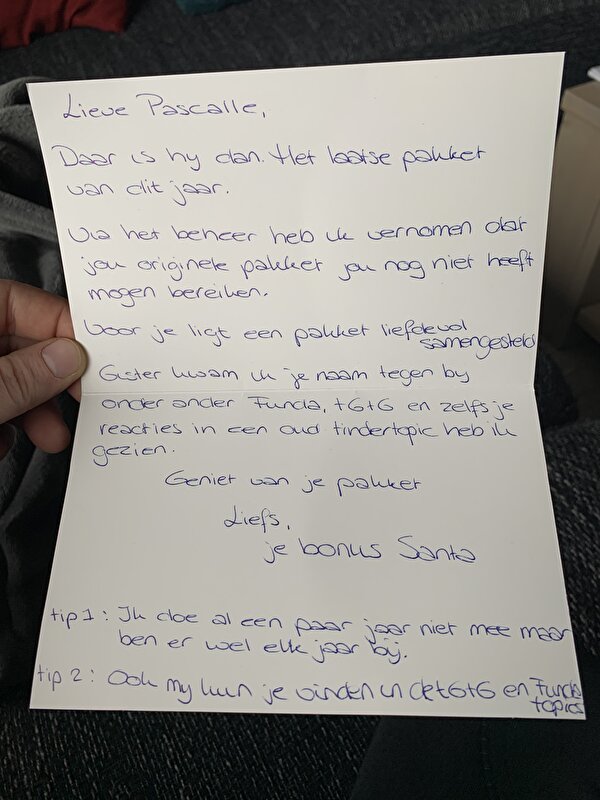 Lieve Pascalle,
Daar is hy dan. Het laatse pakket
van dit jaar.
Via het beheer heb ik vernomen dat
jou originele pakket jou nog niet heeft
mogen bereiken.
Voor je ligt een pakket liefdevol
samengesteld
Gister kwam ik je naam tegen by
onder ander Funda, tGtG en zelfs je
reacties in een oud tindertopic heb ik
gezien.
Geniet van je pakket
Liefs,
je bonus Santa
tip 1: Ik doe al een paar jaar niet mee maar
ben er wel elk jaar bij.
tip 2: Ook my kun je vinden in de tGtG en Funda
topics